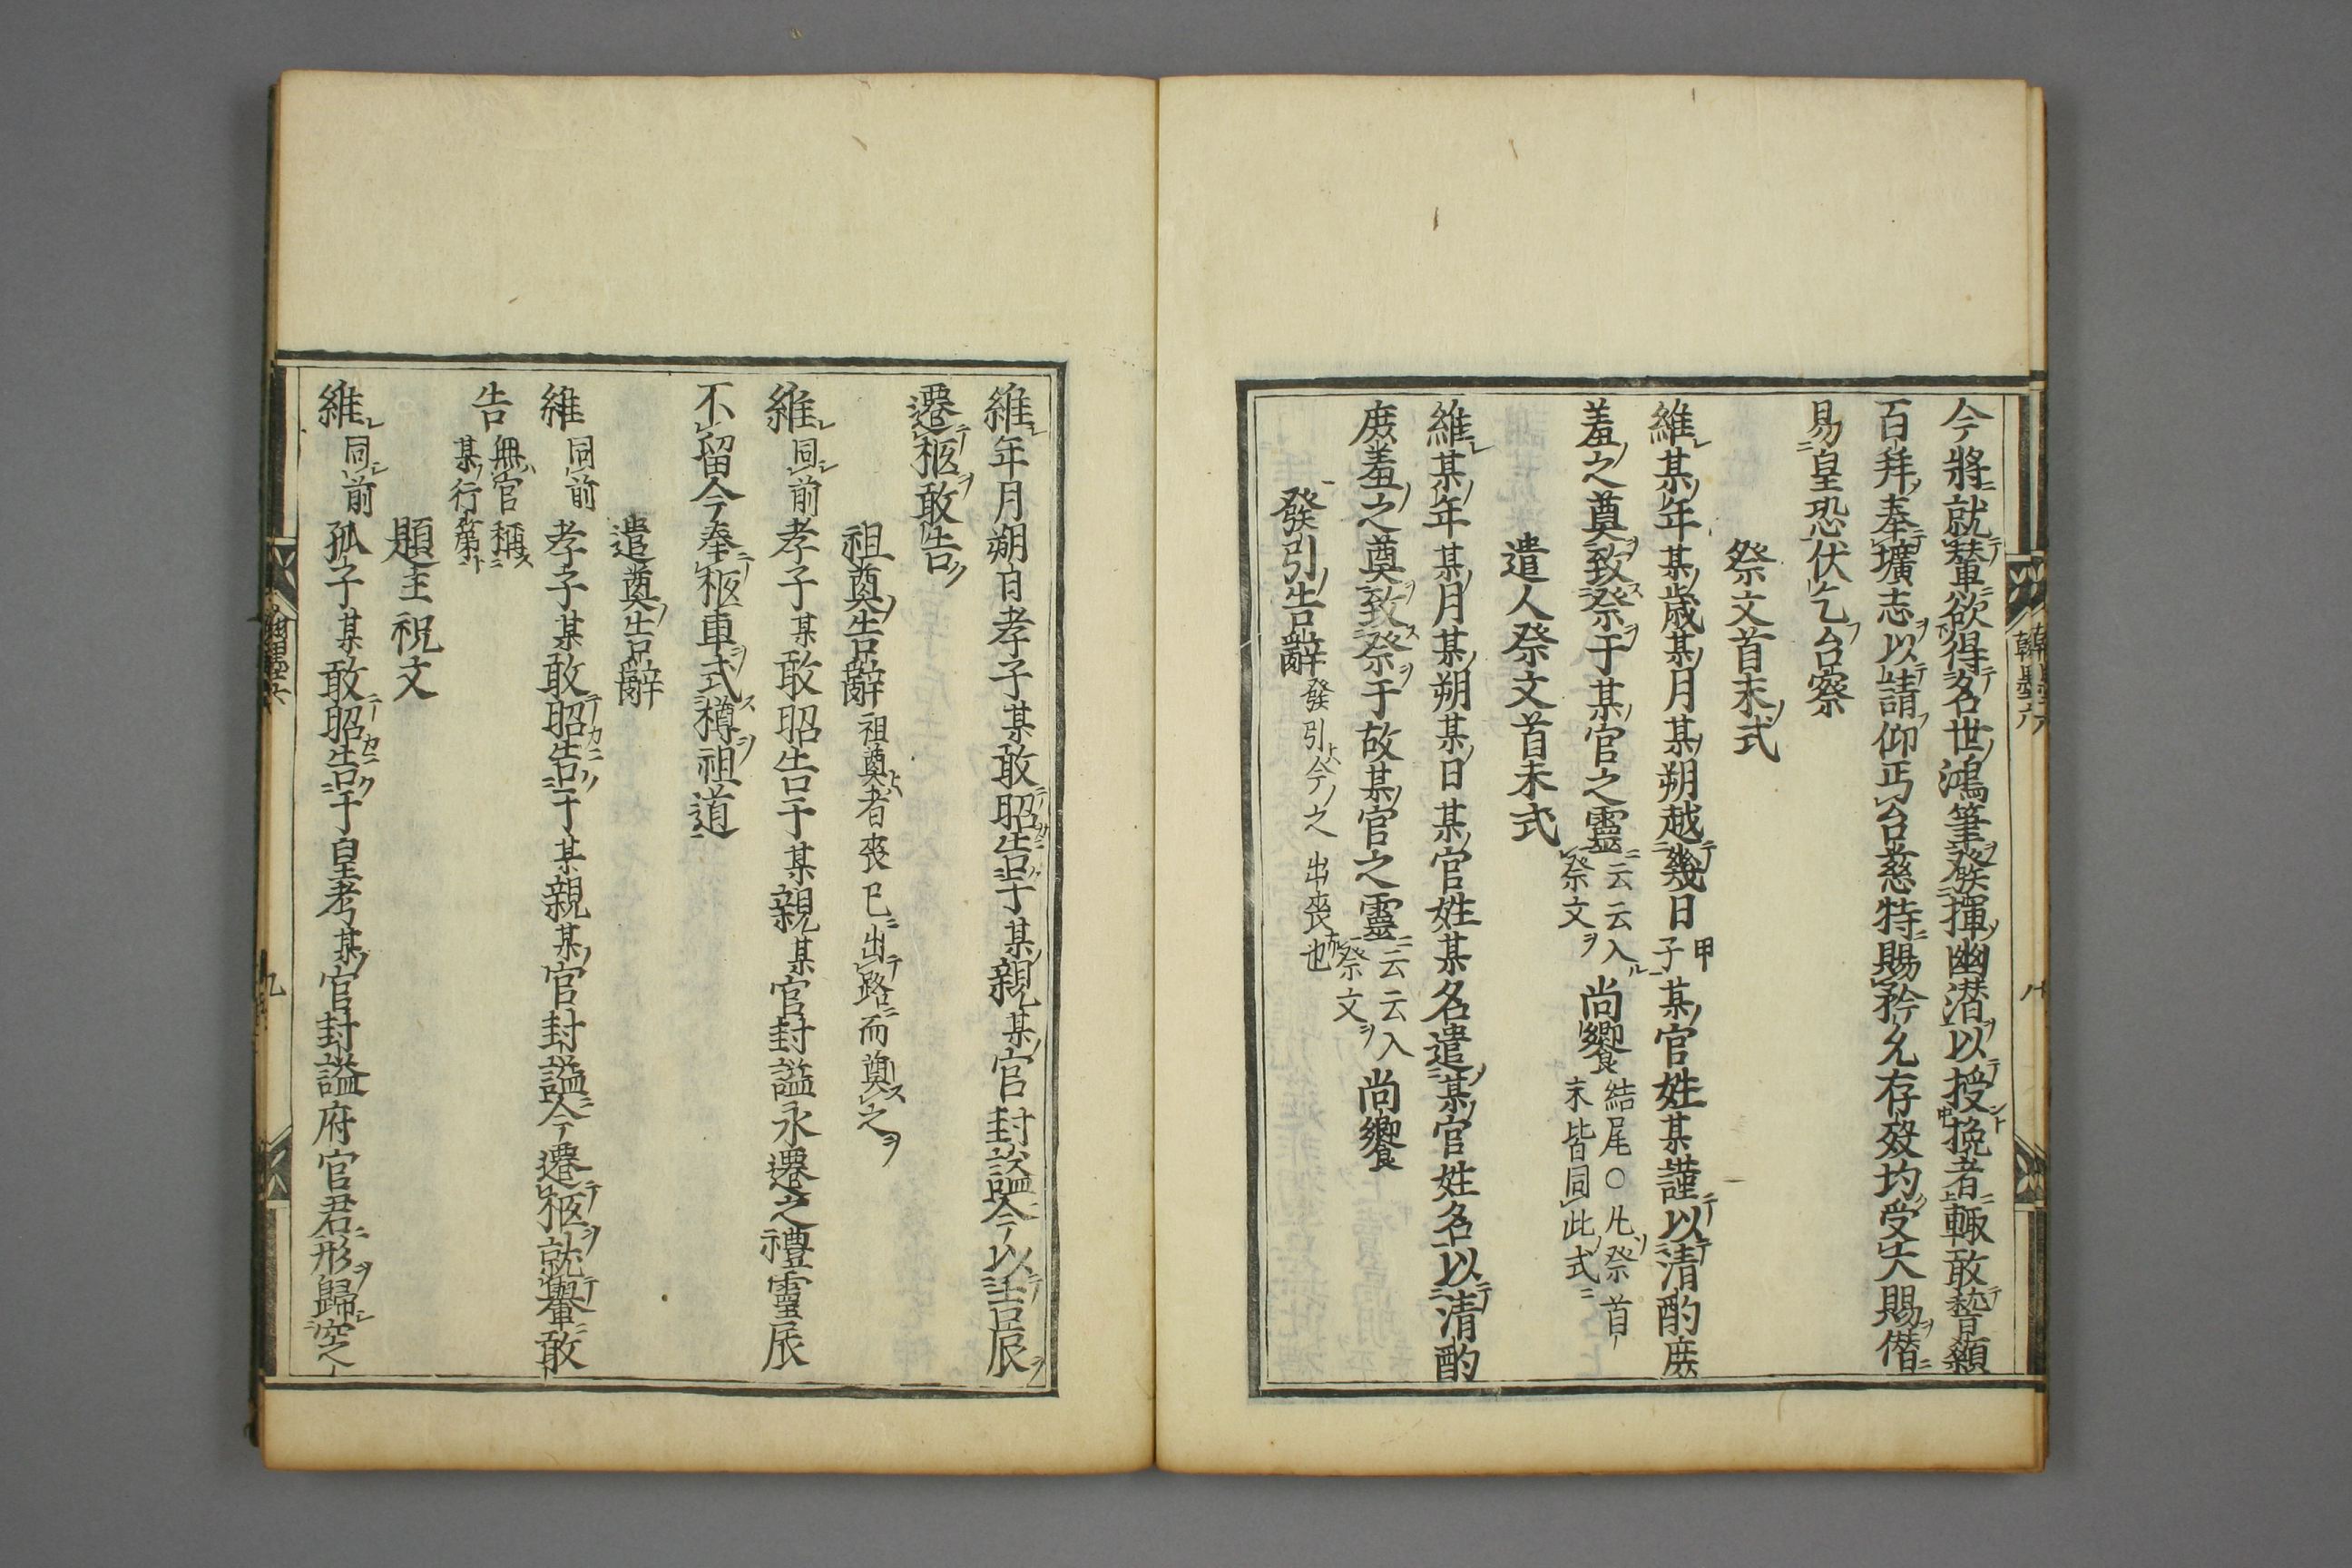 今將就輦欲得名世鴻筆發揮幽潜以授挽者輙敢䭫顙
百拜奉壙志以請仰丐台慈特賜矜允存歿均受大賜僭
易皇恐伏乞台察
祭文首末式
維某年某歲某月某朔越幾日甲子某官姓某謹以清酌庶
羞之奠致祭于某官之靈云云入祭文尚饗結尾○凡祭首末皆同此式
遣人祭文首末式
維某年某月某朔某日某官姓某名遣某官姓名以清酌
庶羞之奠致祭于故某官之靈云云入祭文尚饗
發引告辭發引今之出喪也
翰墨六
八
維年月朔日孝子某敢昭告于某親某官封諡今以吉辰
遷柩敢告
祖奠告辭祖奠者喪已出路而奠之
維同前孝子某敢昭告于某親某官封諡永遷之禮靈辰
不留今奉柩車式樽祖道
遣奠告辭
維同前孝子某敢昭告于某親某官封諡今遷柩就轝敢
告無官稱某行第
題主祝文
維同前孤子某敢昭告于皇考某官封諡府官君形歸窆
九